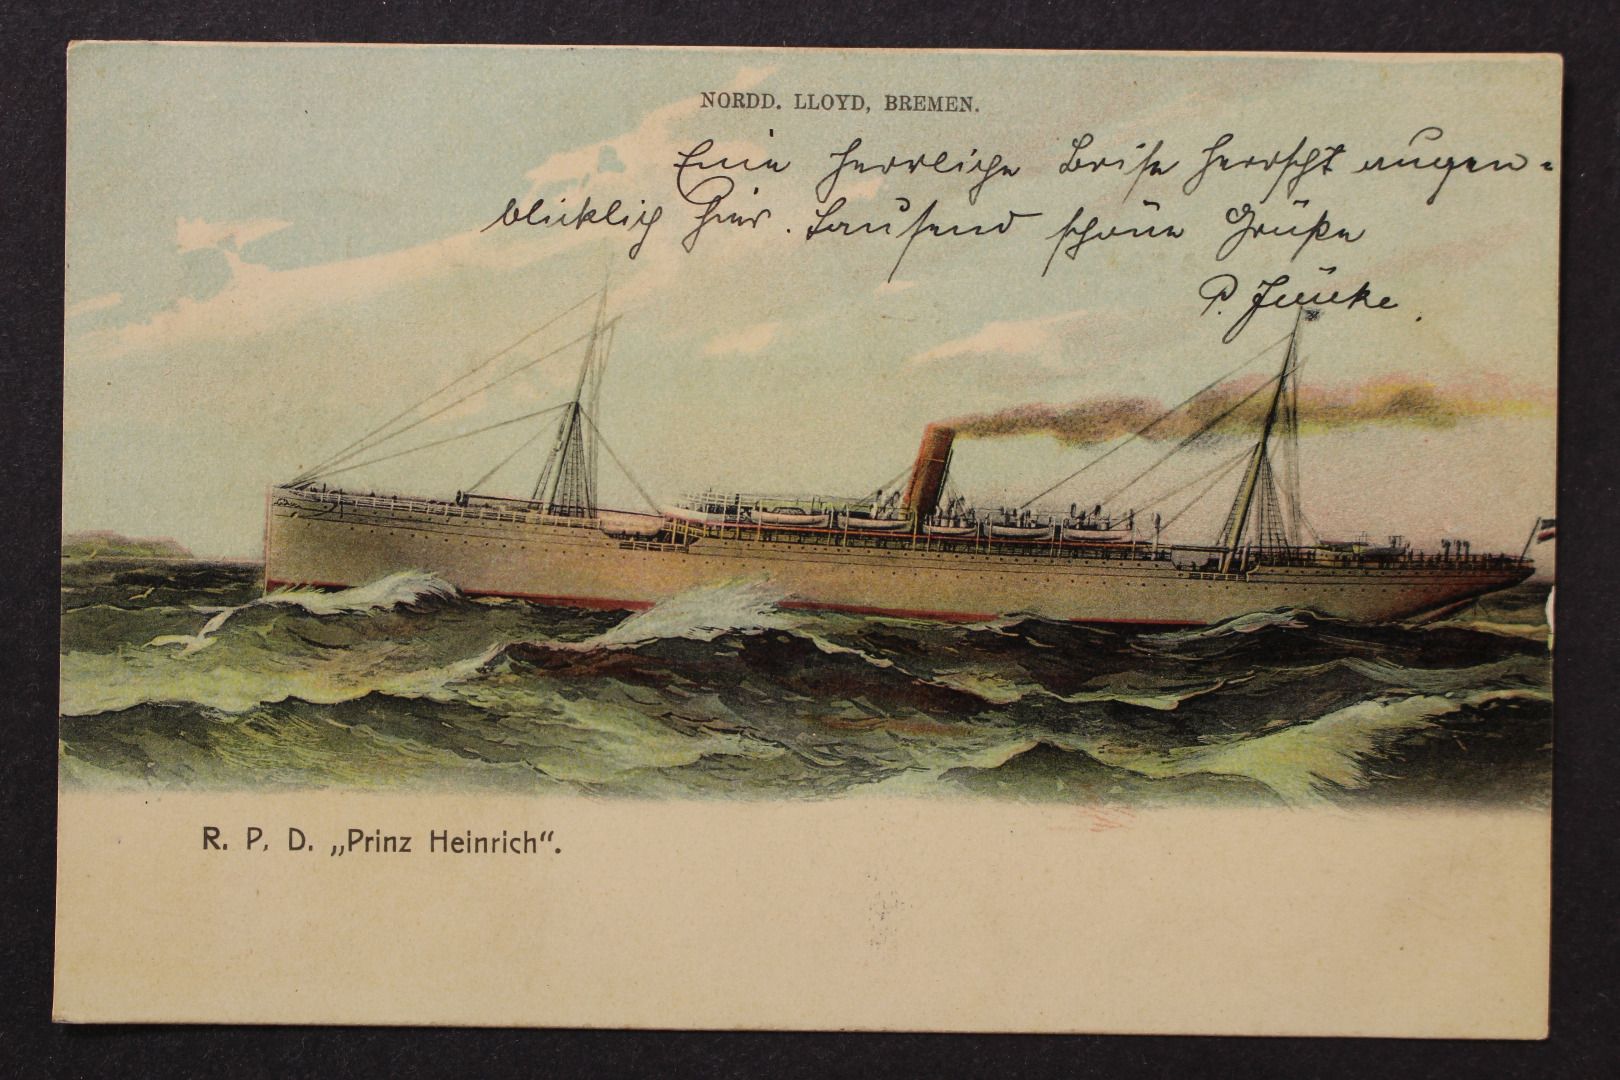 NORDD. LLOYD, BREMEN.
Eine herrliche Brise herrscht augen=
blicklich hier. Tausend schöne Grüße
P.
R. P. D. „Prinz Heinrich“.